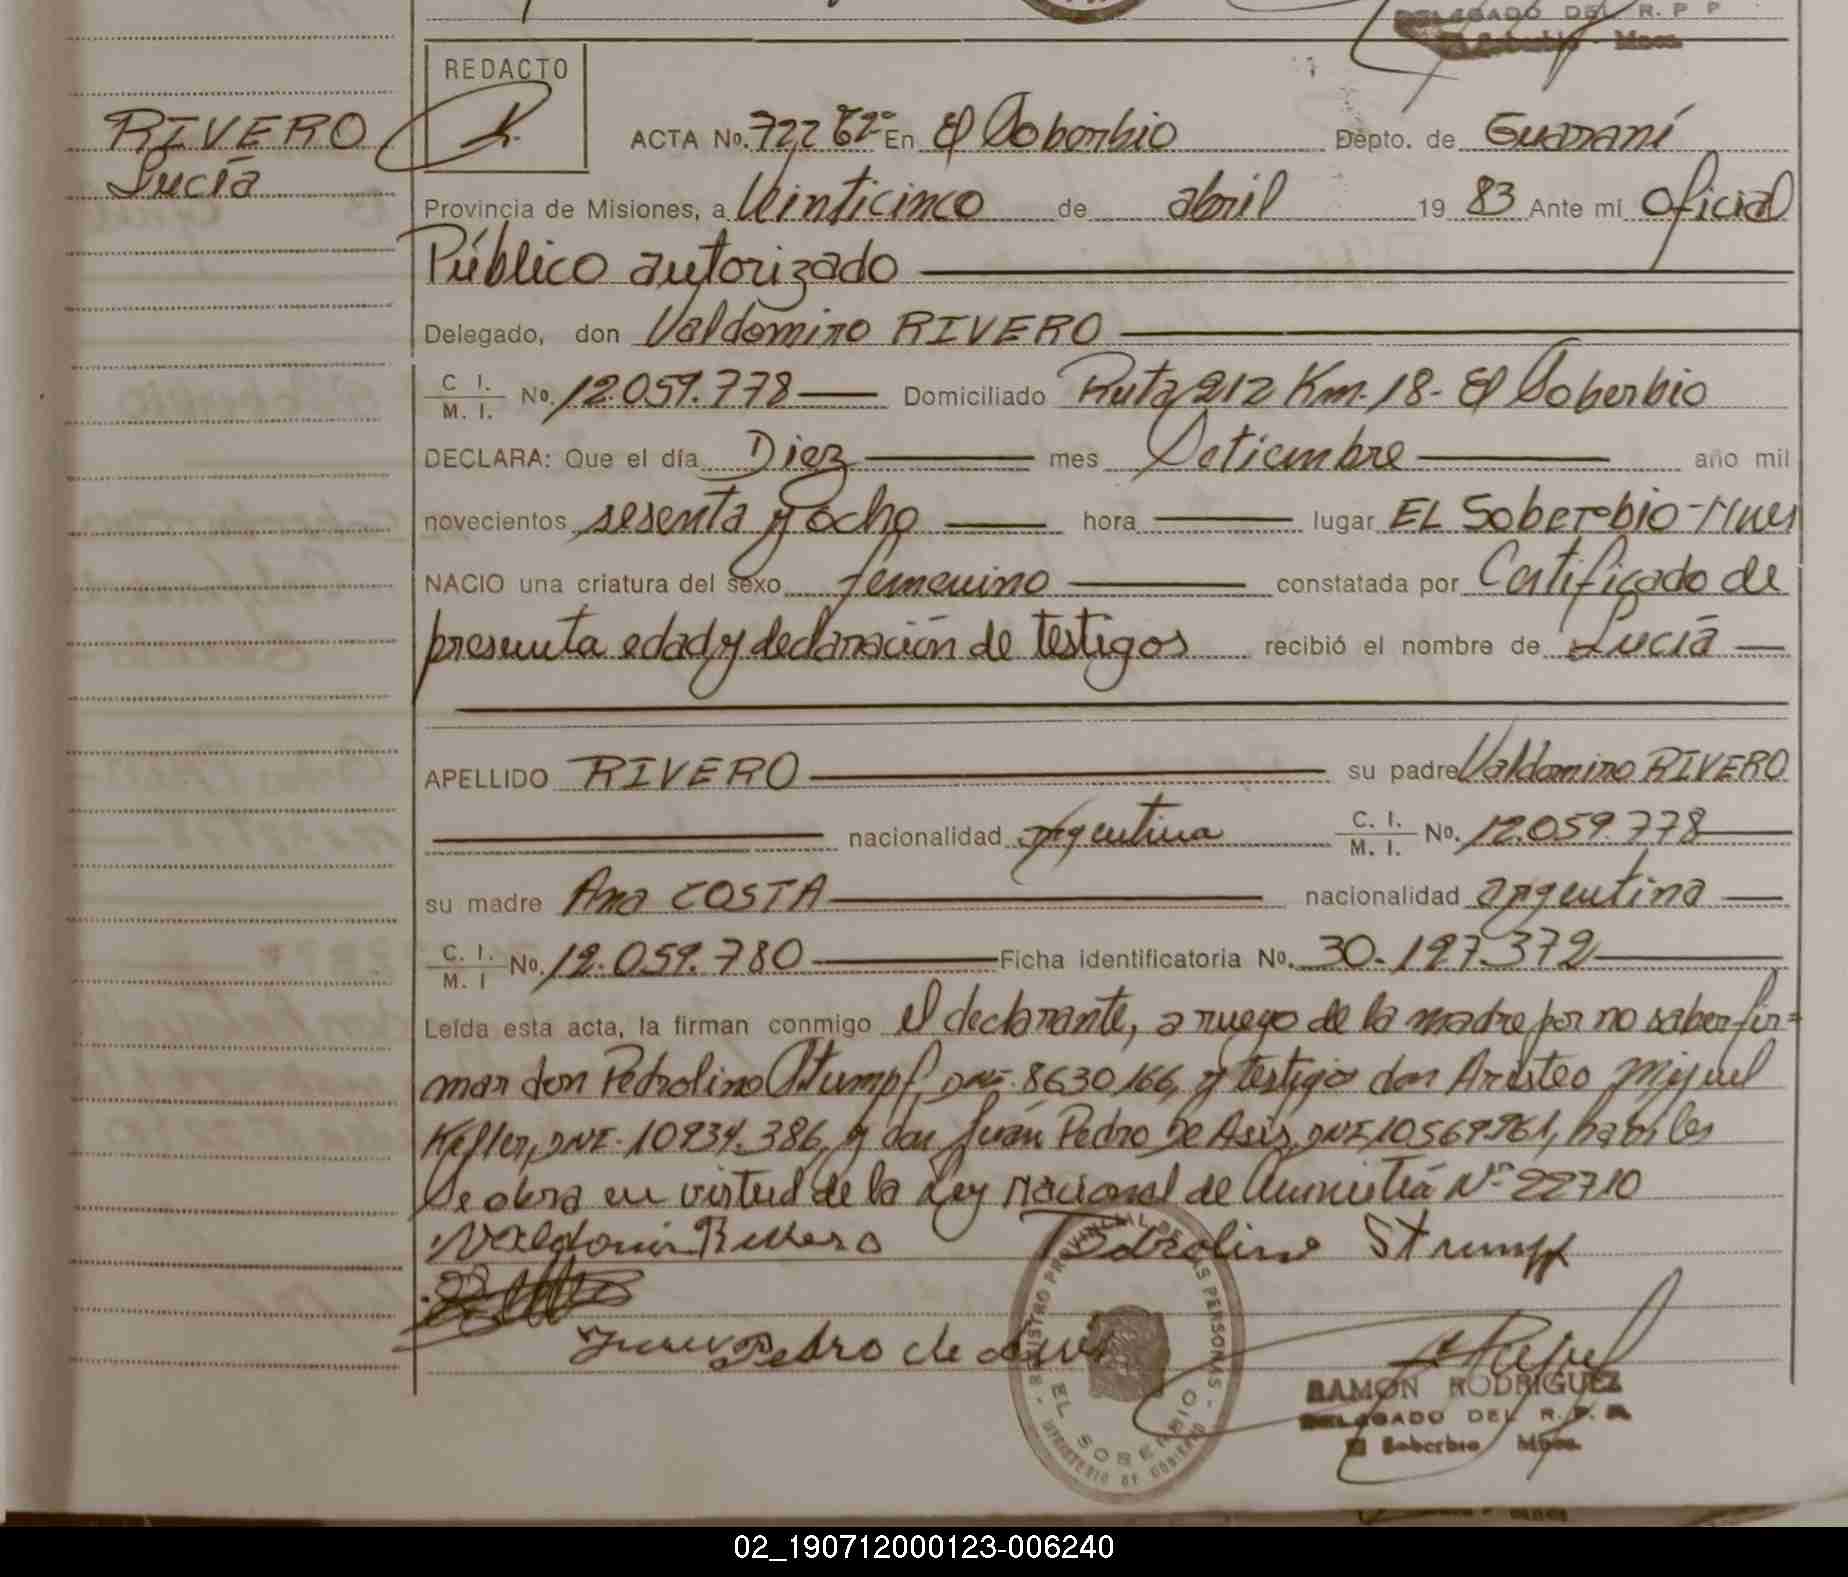 DELEGADO DEL R. P. P
El Soberbio - Mnes.
REDACTO
RIVERO
Lucía
ACTA No. 722 En El Soberbio Depto. de Guaraní
Provincia de Misiones, a Veinticinco de abril 19 83 Ante mi Oficial
Público autorizado
Delegado, don Valdomiro RIVERO
C. I.
M. I. No. 12.059.778 Domiciliado Ruta 212 Km. 18 - El Soberbio
DECLARA: Que el día Diez mes Setiembre año mil
novecientos sesenta y ocho hora lugar EL Soberbio-Mnes
NACIO una criatura del sexo femenino constatada por Certificado de
presunta edad y declaración de testigos recibió el nombre de Lucía
APELLIDO RIVERO su padre Valdomiro RIVERO
nacionalidad argentina C. I.
M. I. No. 12.059.778
su madre Ana COSTA nacionalidad argentina
C. I.
M. I No. 12.059.780 Ficha identificatoria No. 30.127.372
Leída esta acta, la firman conmigo el declarante, a ruego de la madre por no saber fir=
mar don Pedrolino Stumpf, DNI. 8630166, y testigos don Aristeo Miguel
Keller, DNI. 10934.386, y don Juán Pedro De Asis, DNI 10569961, habiles
Se obra en virtud de la Ley Nacional de Amnistiá Nº 22710
Valdomir Rivero Pedrolino Strumpf
Juan Pedro de Asis
REGISTRO PROVINCIAL DE LAS PERSONAS
EL SOBERBIO
MINISTERIO DE GOBIERNO
RAMON RODRIGUEZ
DELEGADO DEL R. P. P.
El Soberbio Mnes.
02_190712000123-006240